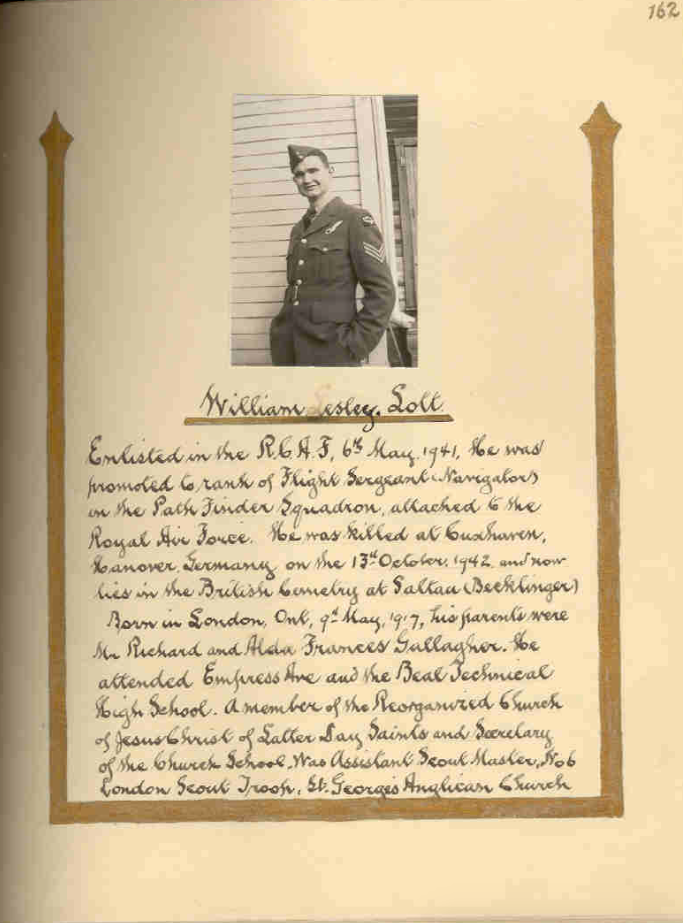 162
William Lesley. Lott
Enlisted in the R.C.A.F, 6th May. 1941, He was
promoted to rank of Flight Sergeant (Navigator)
in the Path Finder Squadron, attached to the
Royal Air Force. He was killed at Cuxhaven,
Hanover, Germany on the 13th October. 1942. and now
lies in the British Cemetry at Saltau (Becklinger)
Born in London, Ont, 9th May, 1917, his parents were
Mr Richard and Alda Frances Gallagher. He
attended Empress Ave and the Beal Technical
High School. A member of the Reorganized Church
of Jesus Christ of Latter Day Saints and Secretary
of the Church School, Was Assistant Scout Master, No 6
London Scout Troop, St. Georges Anglican Church